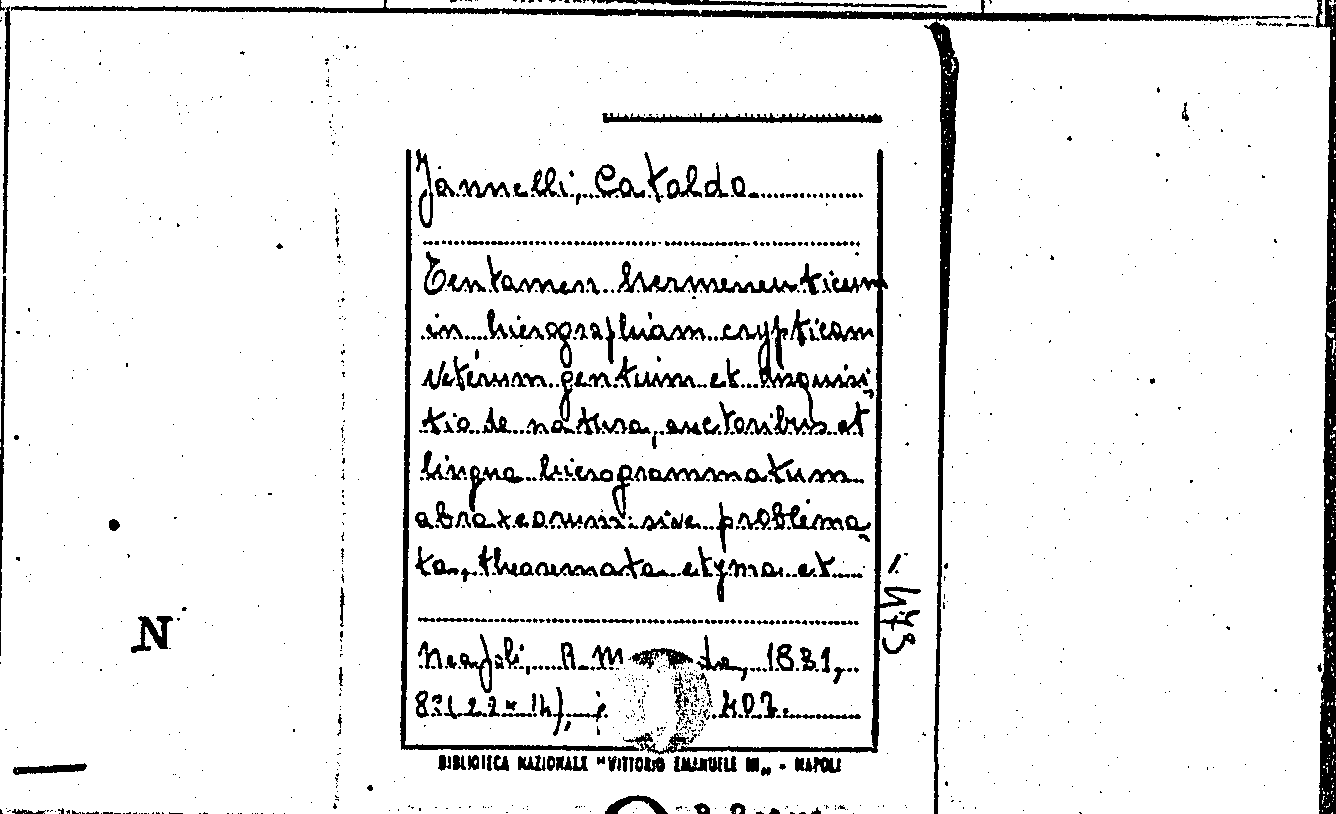 Jannelli, Cataldo
Tentamen hermeneuticum
in hierographiam crypticam
veterum gentium et disquisi-
tio de natura, auctoribus et
lingua hierogrammatum
abraxeorum sive problema-
ta, theoremata etyma et
Neapoli, 1831,
8º(22×14), 407.
BIBLIOTECA NAZIONALE "VITTORIO EMANUELE III„ - NAPOLI
N
473